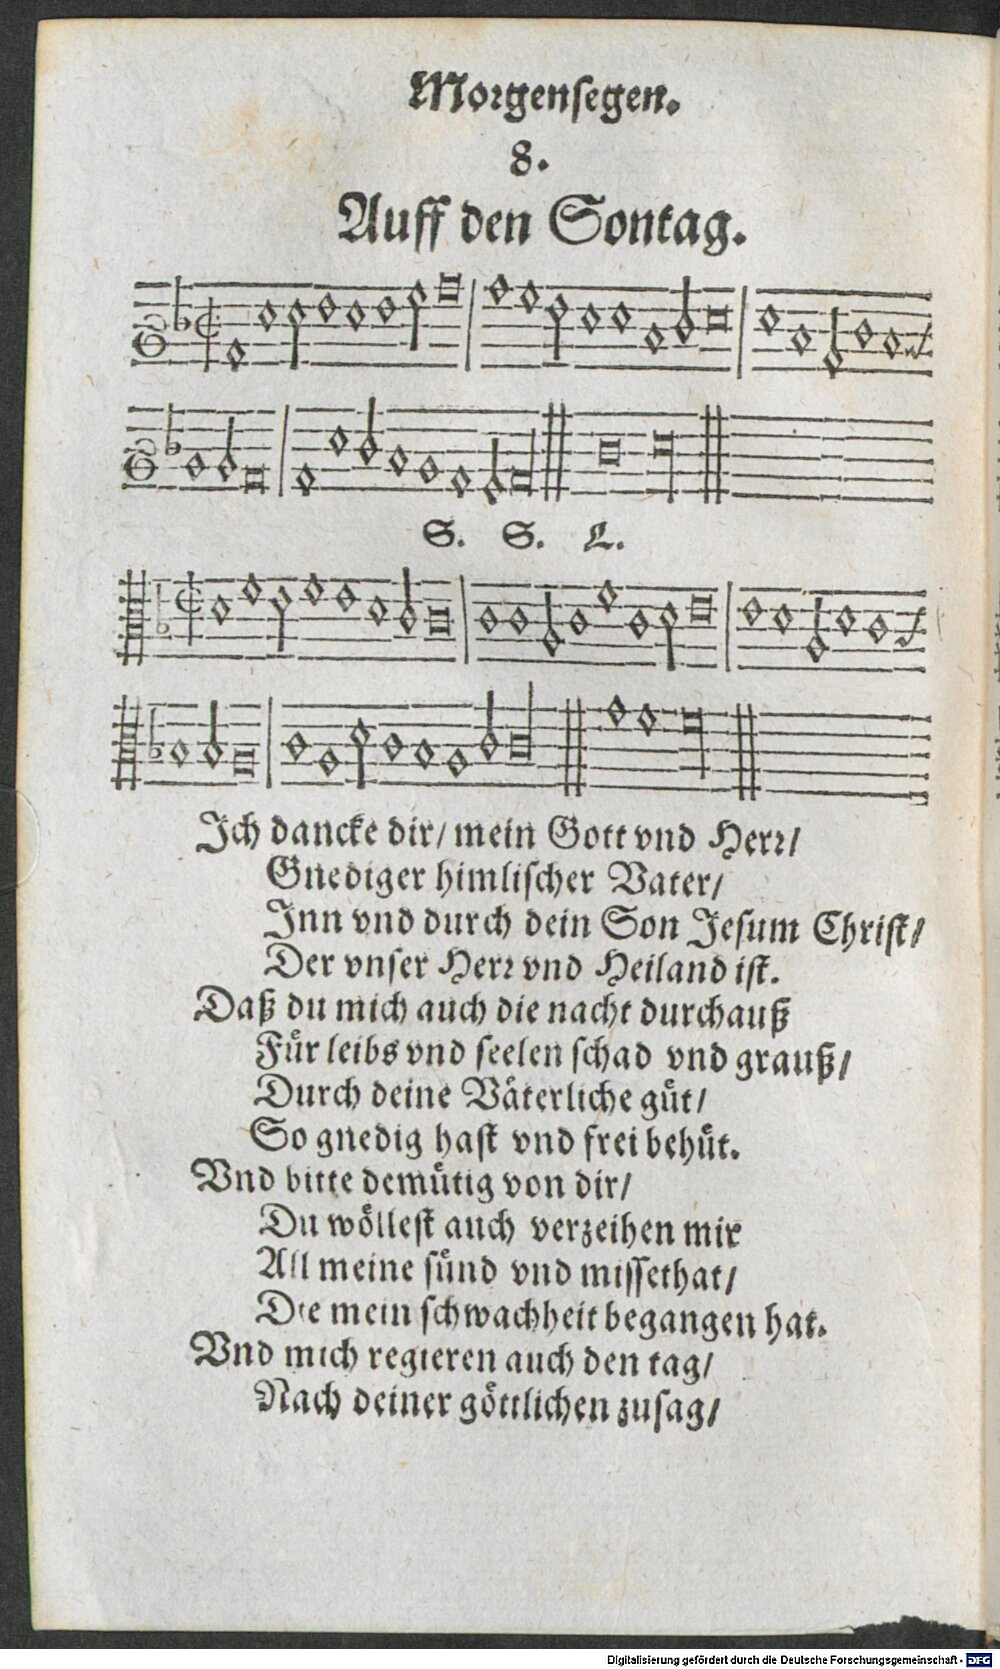 Morgensegen.
8.
Auff den Sontag.
S. S. L.
Ich dancke dir/ mein Gott vnd Herr/
Gnediger himlischer Vater/
Inn vnd durch dein Son Jesum Christ/
Der vnser Herr vnd Heiland ist.
Daß du mich auch die nacht durchauß
Für leibs vnd seelen schad vnd grauß/
Durch deine Väterliche güt/
So gnedig hast vnd frei behüt.
Vnd bitte demütig von dir/
Du wöllest auch verzeihen mir
All meine sünd vnd missethat/
Die mein schwachheit begangen hat.
Vnd mich regieren auch den tag/
Nach deiner göttlichen zusag/
Digitalisierung gefördert durch die Deutsche Forschungsgemeinschaft - DFG